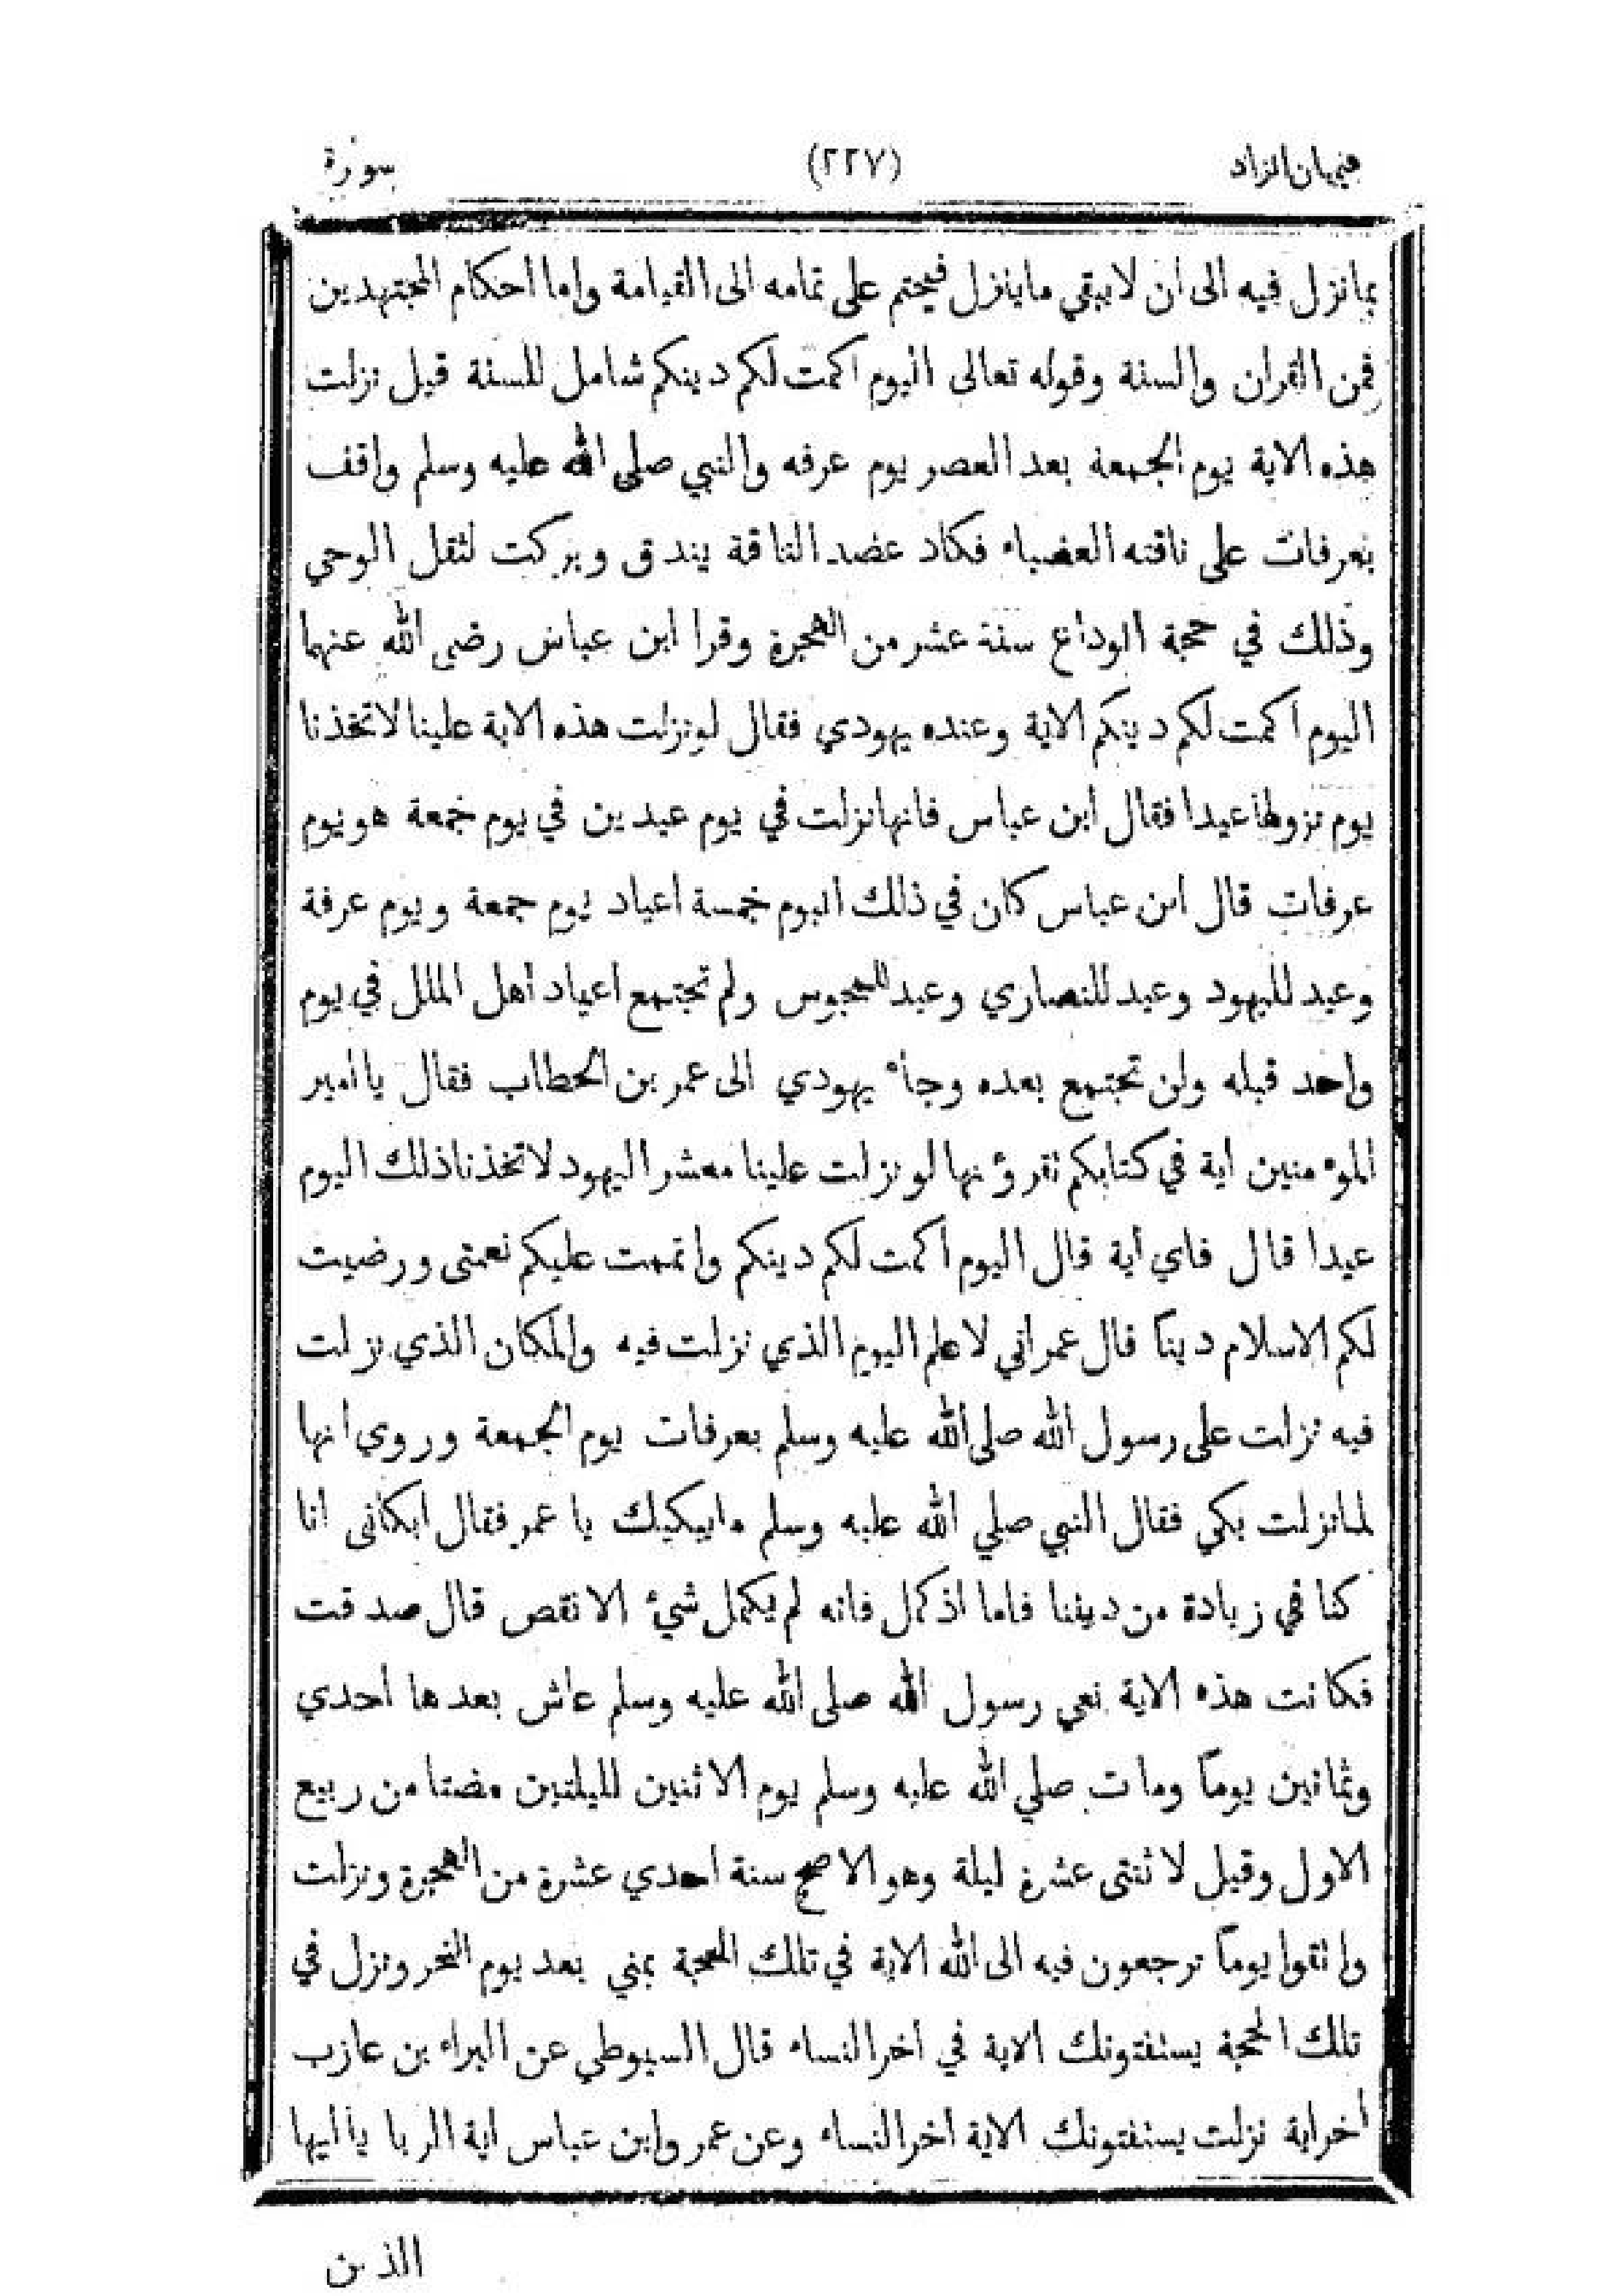 هميان الزاد (٢٢٧) سورة
بمانزل فيه الى ان لا يبقي ماينزل فيختم على تمامه الى القيامة واما احكام المجتهدين
فمن القران والسنة وقوله تعالى اليوم اكملت لكم دينكم شامل للسنة قيل نزلت
هذه الاية يوم الجمعة بعد العصر يوم عرفه والنبي صلى الله عليه وسلم واقف
بعرفات على ناقته العضباء فكاد عضد الناقة يندق وبركت لثقل الوحي
وذلك في حجة الوداع سنة عشر من الهجرة وقرا ابن عباس رضى الله عنهما
اليوم اكملت لكم دينكم الاية وعنده يهودي فقال لو نزلت هذه الاية علينا لاتخذنا
يوم نزولها عيدا فقال ابن عباس فانها نزلت في يوم عيدين في يوم جمعة هو يوم
عرفات قال ابن عباس كان في ذلك اليوم خمسة اعياد يوم جمعة ويوم عرفة
وعيد لليهود وعيد للنصاري وعيد للمجوس ولم تجتمع اعياد اهل الملل في يوم
واحد قبله ولن تجتمع بعده وجاء يهودي الى عمر بن الخطاب فقال يا امير
المؤمنين اية في كتابكم تقرؤنها لو نزلت علينا معشر اليهود لاتخذنا ذلك اليوم
عيدا قال فاي اية قال اليوم اكملت لكم دينكم واتممت عليكم نعمتى ورضيت
لكم الاسلام دينًا قال عمر اني لاعلم اليوم الذي نزلت فيه والمكان الذي نزلت
فيه نزلت على رسول الله صلى الله عليه وسلم بعرفات يوم الجمعة وروي انها
لما نزلت بكى فقال النبي صلي الله عليه وسلم مايبكيك يا عمر فقال ابكانى انا
كنا في زيادة من ديننا فاما اذ كمل فانه لم يكمل شيئ الا نقص قال صدقت
فكانت هذه الاية نعي رسول الله صلى الله عليه وسلم عاش بعدها احدي
وثمانين يومًا ومات صلي الله عليه وسلم يوم الاثنين لليلتين مضتا من ربيع
الاول وقيل لاثنتى عشرة ليلة وهو الاصح سنة احدي عشرة من الهجرة ونزلت
واتقوا يومًا ترجعون فيه الى الله الاية في تلك الحجة بمني بعد يوم النحر ونزل في
تلك الحجة يستفتونك الاية في اخر النساء قال السيوطي عن البراء بن عازب
اخر اية نزلت يستفتونك الاية اخر النساء وعن عمر وابن عباس اية الربا يا ايها
الذين